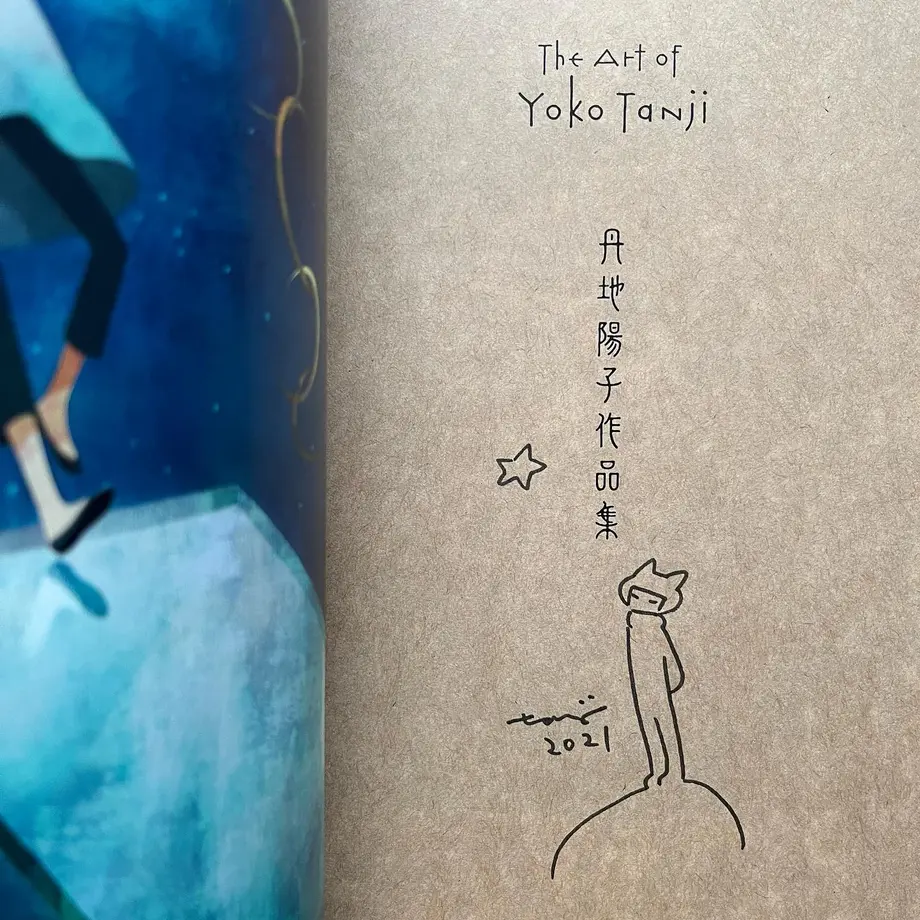 The Art of
Yoko Tanji
丹地陽子作品集
tanji
2021